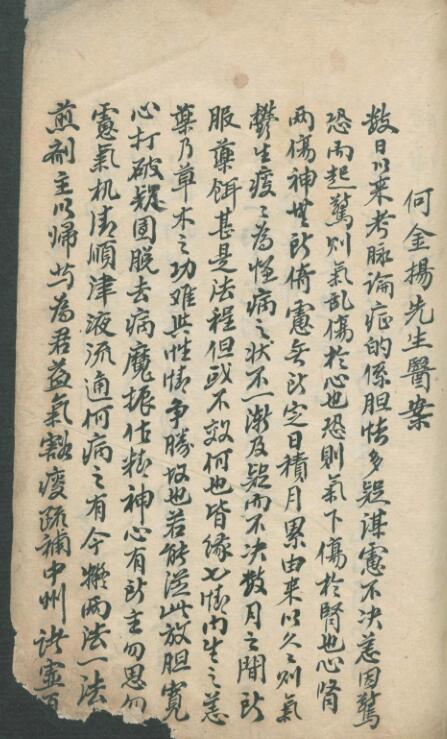 何金揚先生醫案
数日以来考脉論症的係胆怯多疑謀慮不决恙因驚
恐而起驚则氣乱傷於心也恐则氣下傷於腎也心腎
两傷神無所倚慮無所定日積月累由来以久久则氣
鬱生痰痰為怪病之状不一漸及疑而不决数月之間所
服藥餌甚是法程但或不效何也皆緣七情内生之恙
藥乃草木之功难與性情争勝故也若能从此放胆寬
心打破疑團脱去病魔振作精神心有所主勿思勿
慮氣机清順津液流通何病之有今擬两法一法
煎剂主以歸芍為君益氣豁痰疏補中州